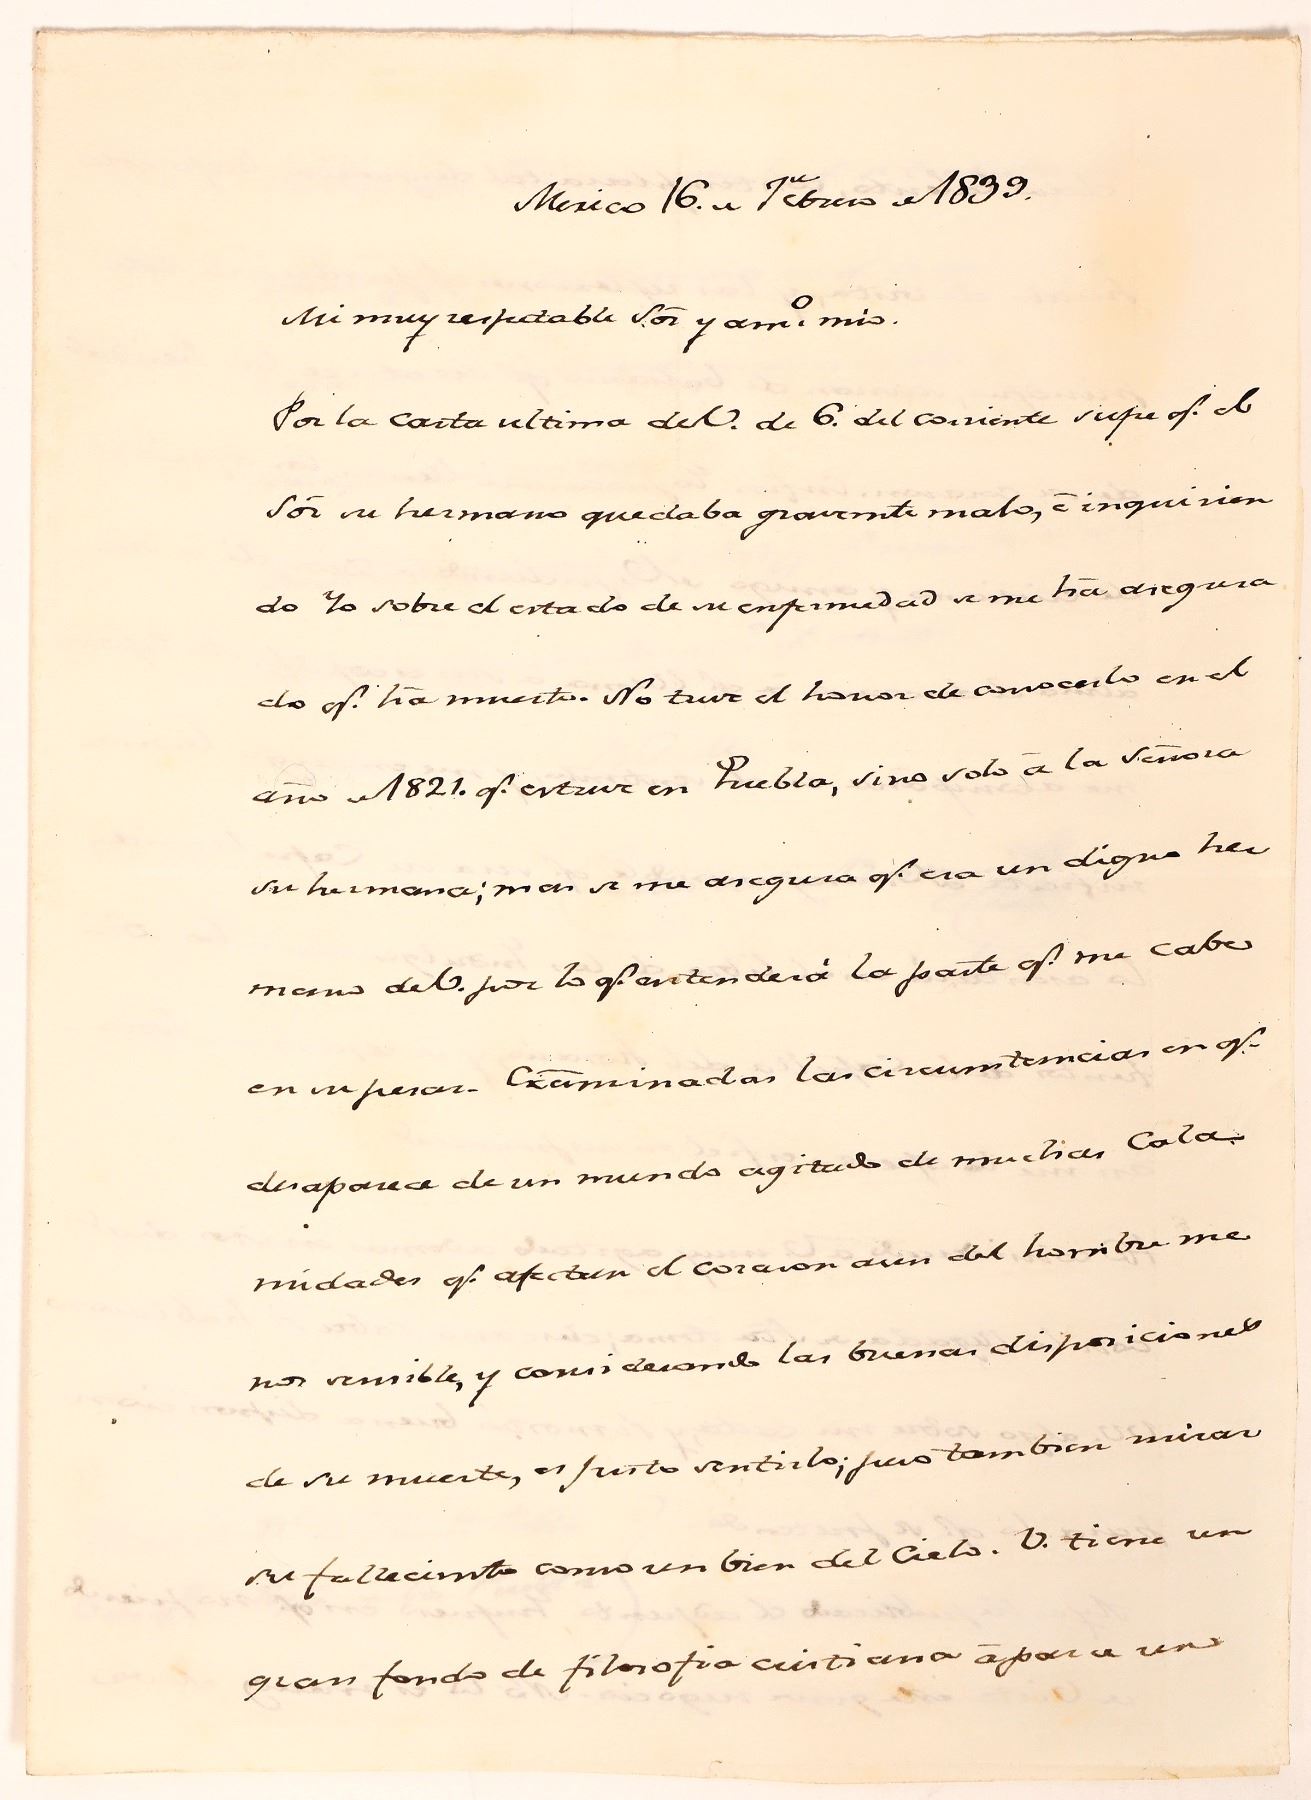 Mexico 16. de Febrero de 1839.
Mi muy respetable Sōr y am.º mio.
Por la carta ultima de V. de 6. del corriente supe q.ᵉ el
Sōr su hermano quedaba gravemte malo, ē inquirien
do Yo sobre el estado de su enfermedad se me hā asegura
do q.ᵉ hā muerto. No tuve el honor de conocerlo en el
año de 1821. q.ᵉ estuve en Puebla, sino solo ā la Señora
su hermana; mas se me asegura q.ᵉ era un digno her
mano de V. por lo q.ᵉ entenderá la parte q.ᵉ me cabe
en su pesar. Exāminadas las circumstancias en q.ᵉ
desaparece de un mundo agitado de muchas Cala
midades q.ᵉ afectan el corazon aun del hombre me
nos sensible, y considerando las buenas disposiciones
de su muerte, es justo sentirlo; pero tambien mirar
su fallecimto como un bien del Cielo. V. tiene un
gran fondo de filosofia cristiana ā par de un